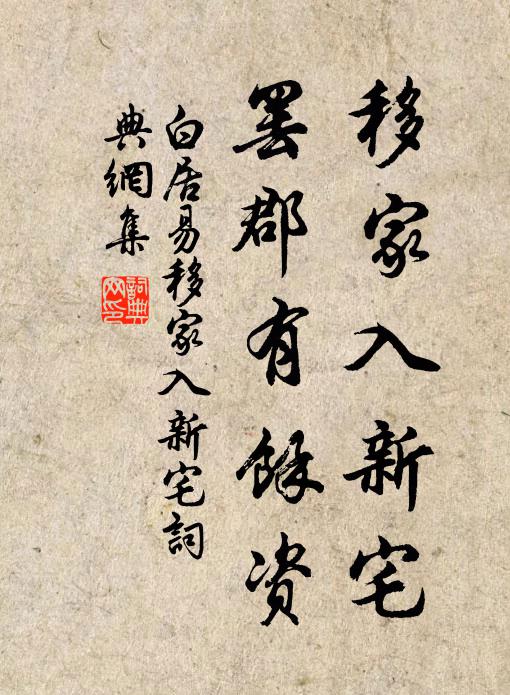 移家入新宅
罢郡有餘资
白居易移家入新宅詞
典網集
詞典
网印